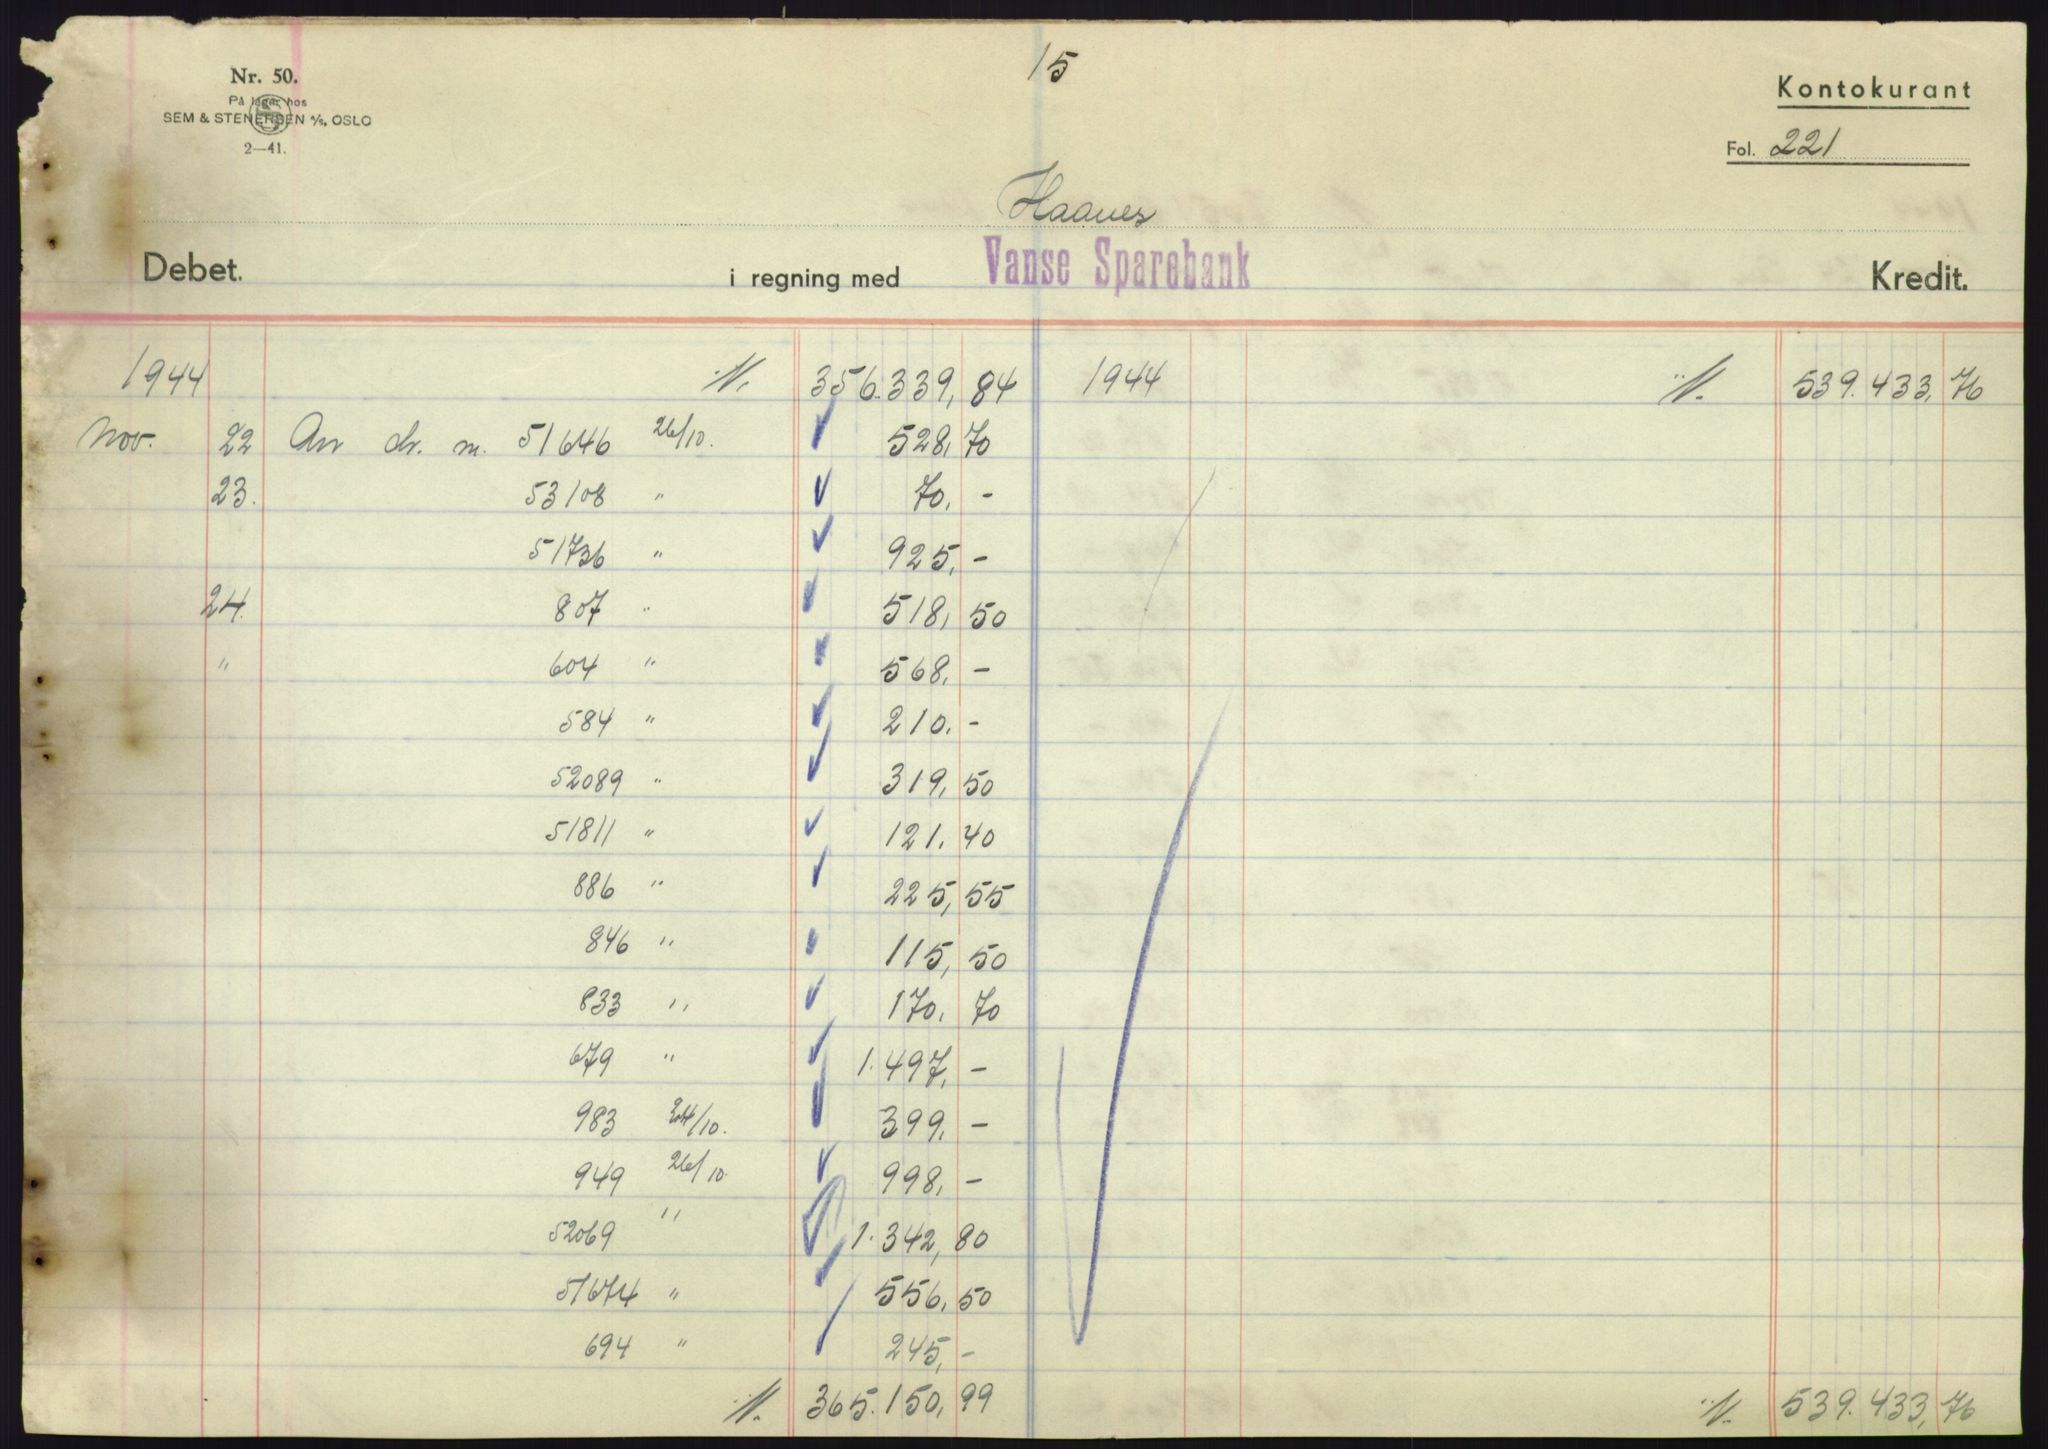 15
Nr. 50.
På lager hos
SEM & STENERSEN A/S, OSLO
2—41.
Kontokurant
Fol. 221
Haanes
Debet. i regning med Vanse Sparebank Kredit.
1944 ·/·. 356.339,84 1944 ·/·. 539.433,76
Nov. 22 An ch. m. 51646 26/10. 528,70
23. 53108 " 70,-
51736 " 925,-
24. 807 " 518,50
" 604 " 568,-
584 " 210.-
52089 " 319,50
51811 " 121.40
886 " 225,55
846 " 115,50
833 " 170.70
679 " 1.497,-
983 24/10. 399,-
949 26/10. 998,-
52069 " 1.342,80
51674 " 556,50
694 " 245,-
·/·. 365.150,99 ·/·. 539.433,76